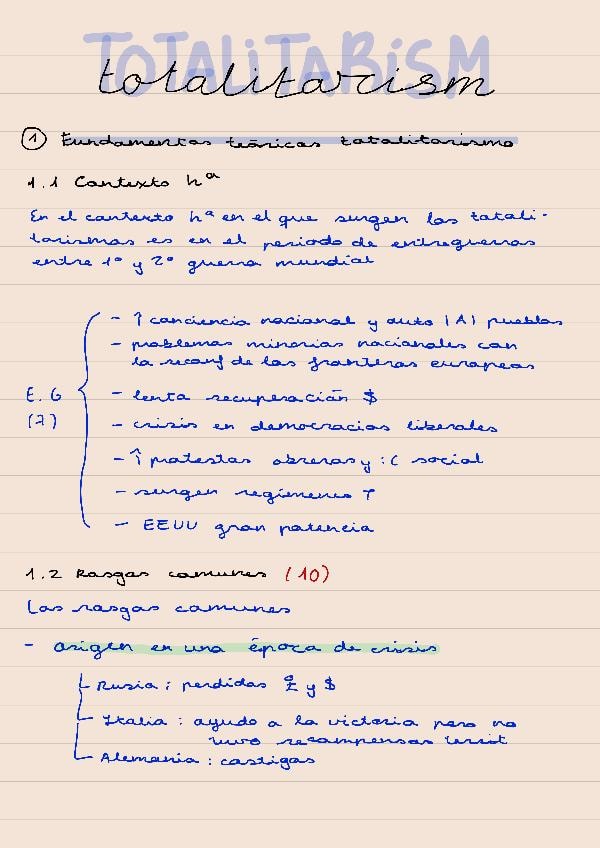 TOTALITARISM
totalitarism
1 Fundamentos teóricos totalitarismo
1.1 Contexto hª
En el contexto hª en el que surgen los totali-
tarismos es en el periodo de entreguerras
entre 1º y 2º guerra mundial
- ↑ conciencia nacional y auto |A| pueblos
- problemas minorias nacionales con
la reconf de las fronteras europeas
E. G
(7)
- lenta recuperación $
- crisis en democracias liberales
- ↑ protestas obreras y :( social
- surgen regímenes T
- EEUU gran potencia
1.2 Rasgos comunes (10)
Los rasgos comunes
- origen en una época de crisis
Rusia : perdidas y $
Italia : ayudo a la victoria pero no
tuvo recompensas territ
Alemania : castigos